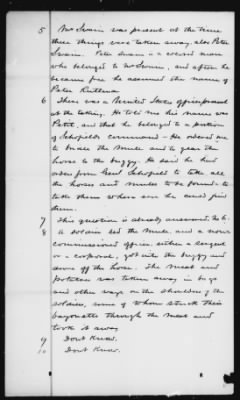 5 Mr Swain was present at the time
these things were taken away, also Peter
Swain. Peter Swain is a colored man
who belonged to Mr Swain, and after he
became free he assumed the name of
Peter
6 There was a United States officer present
at the taking. He told me his name was
and that he belonged to a portion
of Schofields command - He ordered me
to bridle the mule and to gear the
horse to the buggy. He said he had
orders from Genl Schofield to take all
the horses and mules to be found - to
take them where ever he could find
them.
7 This question is already answered. No 6.
8 A soldier led the mule, and a non
commissioned officer, either a sergeant
or a corporal, got into the buggy and
drove off the horse. The meat and
potatoes was taken away in bags
and other ways on the shoulders of the
soldiers, some of whom stuck their
bayonets through the meat and
took it away
9 Dont Know.
10 Dont Know.